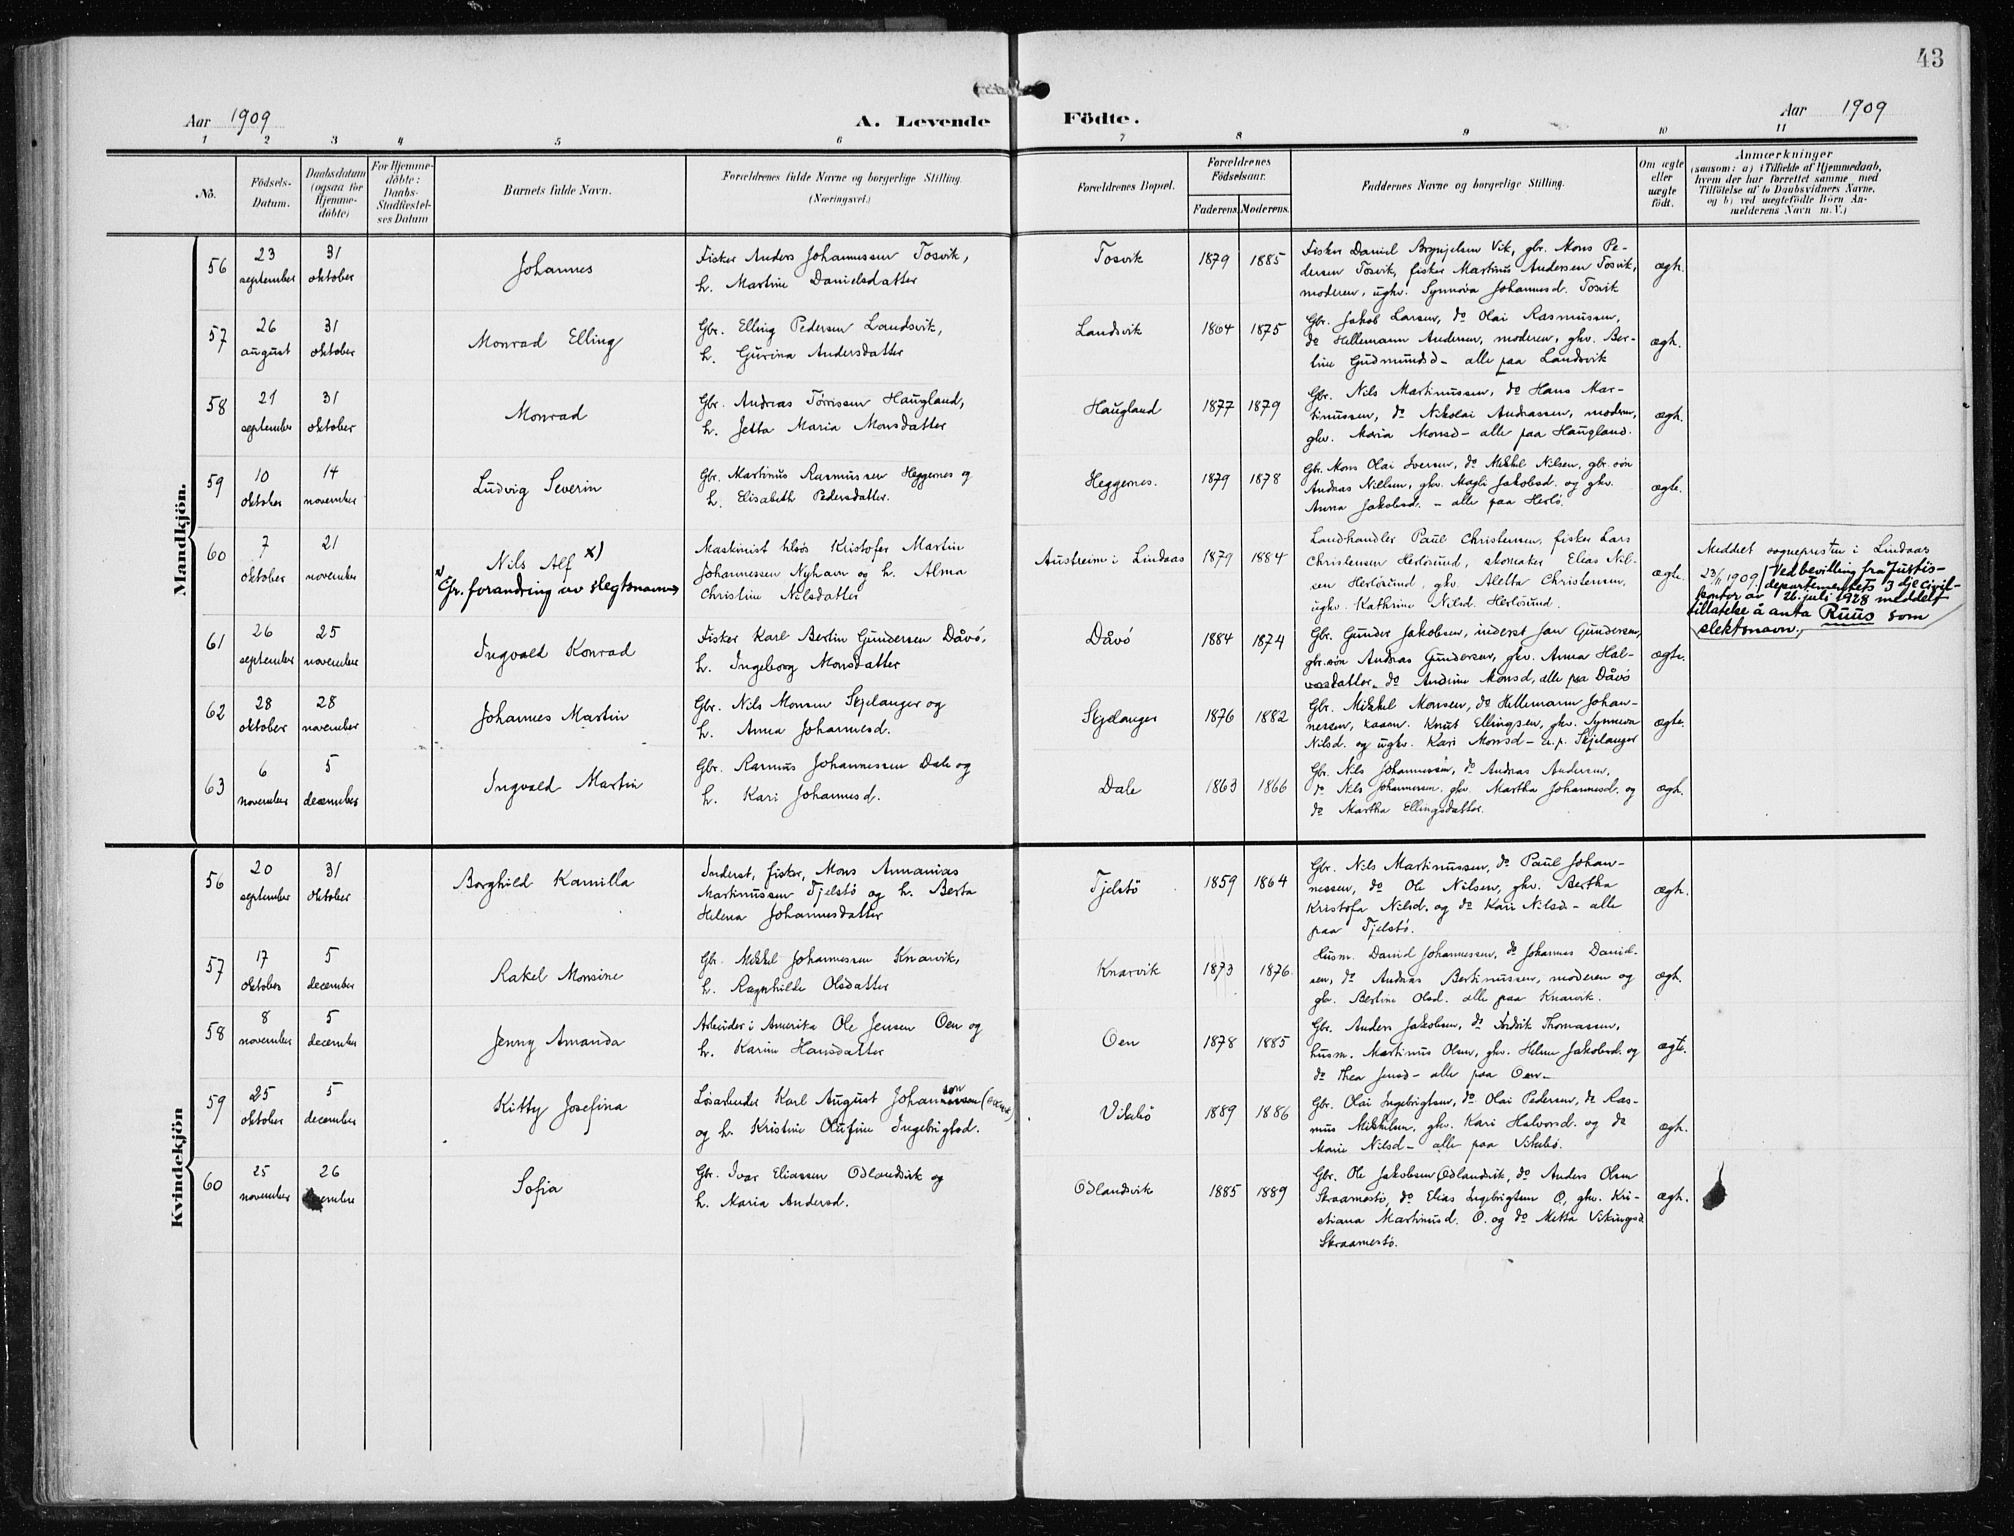 43
Aar 1909
A. Levende Födte.
Aar 1909
1 2 3 4 5 6 7 8 9 10 11
No.
Födsels-
Datum.
Daabsdatum
(ogsaa for
Hjemme-
döbte)
For Hjemme-
döbte:
Daabs-
Stadfæstel-
ses Datum
Barnets fulde Navn.
Forældrenes fulde Navne og borgerlige Stilling.
(Næringsvei.)
Forældrenes Bopæl.
Forældrenes
Födselsaar.
Faderens. Moderens.
Faddernes Navne og borgerlige Stilling.
Om ægte
eller
uægte
födt.
Anmærkninger
(saasom: a) i Tilfælde af Hjemmedaab,
hvem der har forrettet samme, med
Tilföielse af to Daabsvidners Navne,
og b) ved uægtefödte Börn An-
melderens Navn m. V.)
Mandkjön.
56
23
september
31
oktober
Johannes
Fisker Anders Johannessen Tosvik,
h. Martine Danielsdatter
Tosvik
1879
1885
Fisker Daniel Brynjelsen Vik, gbr. Mons Pe-
dersen Tosvik, fisker Martinus Andersen Tosvik,
moderen, ugkv. Synnøva Johannesd. Tosvik
ægt.
57
26
august
31
oktober
Monrad Elling
Gbr. Elling Pedersen Landsvik,
h. Gurina Andersdatter
Landsvik
1864
1875
Gbr. Jakob Larsen, do Olai Rasmussen,
do Hellemann Andersen, moderen, gkv. Ber-
tine Gudmundsd – alle paa Landsvik
ægt.
58
21
september
31
oktober
Monrad
Gbr. Andreas Tørrissen Haugland,
h. Jetta Maria Monsdatter
Haugland
1877
1879
Gbr. Nils Martinussen, do Hans Mar-
tinussen, do Nikolai Andreassen, moderen,
gkv. Maria Monsd – alle paa Haugland.
ægt.
59
10
oktober
14
november
Ludvig Severin
Gbr. Martinus Rasmussen Heggernes og
h. Elisabeth Pedersdatter.
Heggernes.
1879
1878
Gbr. Mons Olai Iversen, do Mikkel Nilsen, gbr.søn
Andreas Nilsen, gkv. Magli Jakobsd. og gkv.
Anna Jakobsd. – alle paa Herlø.
ægte.
60
7
oktober
21
november
Nils Alf x)
x) Gr. forandring av slegtsnavn
Maskinist tilsøs Kristofer Martin
Johannessen Nyhavn og h. Alma
Christine Nilsdatter
Austreim i Lindaas
1879
1884
Landhandler Paul Christensen, fisker Lars
Christensen Herløsund, skomaker Elias Nil-
sen Herløsund, gkv. Aletta Christensen,
ugkv. Kathrine Nilsd. Herløsund.
ægte.
Meddelt sognepresten i Lindaas
23/11 1909. / Ved bevilling fra Justis-
departementets 3 dje civil-
kontor av 26. juli 1928 meddelt
tillatelse å anta Ruus som
slektsnavn.
61
26
september
25
november
Ingvald Konrad
Fisker Karl Bertin Gundersen Dåvø,
h. Ingeborg Monsdatter
Dåvø
1884
1874
Gbr. Gunder Jakobsen, inderst Jan Gundersen,
gbr.søn Andreas Gundersen, gkv. Anna Hal-
vorsdatter, do Andrine Monsd, alle paa Dåvø
ægte.
62
28
oktober
28
november
Johannes Martin
Gbr. Nils Monsen Skjelanger og
h. Anna Johannesd.
Skjelanger
1876
1882
Gbr. Mikkel Monsen, do Hellemann Johan-
nessen, Knut Ellingsen, gkv. Synneva
Nilsd. og ugkv. Kari Monsd – a. p. Skjelanger
ægte.
63
6
november
5
december
Ingvald Martin
Gbr. Rasmus Johannessen Dale og
h. Kari Johannesd.
Dale
1863
1866
Gbr. Nils Johannessen, do Andreas Andersen,
do Nils Johannessen, gkv. Martha Johannesd. og
do Martha Ellingsdatter.
ægt.
Kvindekjön
56
20
september
31
oktober
Borghild Kamilla
Inderst, fisker, Mons Annanias
Martinussen Tjelstø og h. Berta
Helena Johannesdatter
Tjelstø
1859
1864
Gbr. Nils Martinussen, do Paul Johan-
nessen, do Ole Nilsen, gkv. Bertha
Kristofa Nilsd. og do Kari Nilsd – alle
paa Tjelstø.
ægt.
57
17
oktober
5
december
Rakel Monsine
Gbr. Mikkel Johannessen Knarvik,
h. Ragnhilde Olsdatter
Knarvik
1873
1876.
Husm. David Johannessen, do Johannes David-
sen, do Andreas Bertinussen, moderen og
gkv. Bertine Olsd. alle paa Knarvik.
ægt.
58
8
november
5
december
Jenny Amanda
Arbeider i Amerika Ole Jensen Oen og
h. Karine Hansdatter
Oen
1878
1885
Gbr. Anders Jakobsen, do Fredrik Thomassen,
husm. Martinus Olsen, gkv. Helene Jakobsd. og
do Thea Jensd – alle paa Oen –
ægte.
59
25
oktober
5
december
Kitty Josefina
Løsarbeider Karl August Johannessen
son
og h. Kristine Olufine Ingebrigtsd.
Vikebø
1889
1886
Gbr. Olai Ingebrigtsen, do Olai Pedersen, do Ras-
mus Mikkelsen, gkv. Kari Halvorsd. og do
Marie Nilsd – alle paa Vikebø.
ægt.
60
25
november
26
Sofia
Gbr. Ivar Eliassen Odlandsvik og
h. Maria Andersd.
Odlandsvik
1885
1889
Gbr. Ole Jakobsen Odlandsvik, do Anders Olsen
Skraamestø, do Elias Ingebrigtsen O., gkv. Kri-
stiana Martinusd. O. og do Metta Vikingsd.
Skraamestø.
ægt.